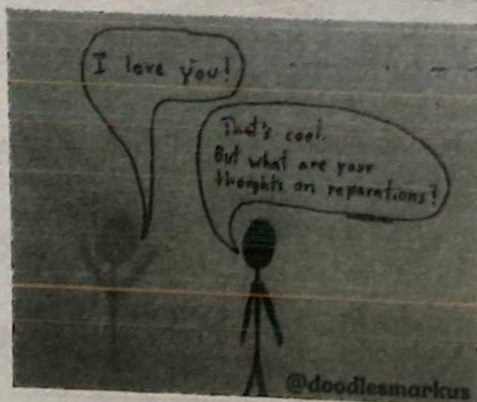 I love you!
That's cool.
But what are your
thoughts on reparations?
@doodlesmarkus